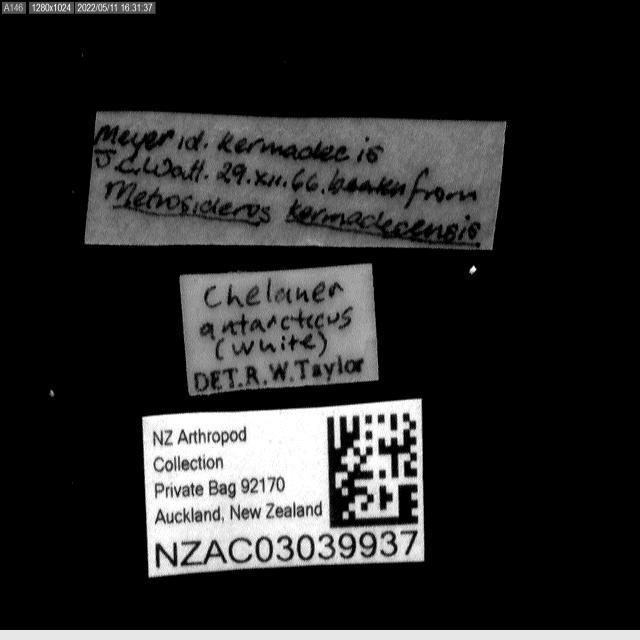 A146 1280x1024 2022/05/11 16:31:37
Meyer id. Kermadec is
J.C.Watt. 29.XII.66. beaten from
Metrosideros kermadecensis
Chelaner
antarcticus
(White)
DET.R.W.Taylor
NZ Arthropod
Collection
Private Bag 92170
Auckland, New Zealand
NZAC03039937